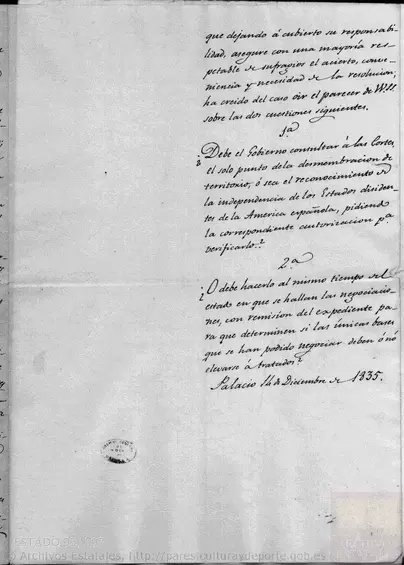 que dejando á cubierto su responsabi-
lidad, asegure con una mayoría res-
petable de sufragios el acierto, conve-
niencia y necesidad de la resolucion;
ha creido del caso oir el parecer de VV.EE.
sobre las dos cuestiones siguientes.
1.a
¿Debe el Gobierno consultar á las Cortes
el solo punto de la desmembracion de
territorio, ó sea el reconocimiento de
la independencia de los Estados disiden-
tes de la America española, pidiendo
la correspondiente autorizacion pa
verificarlo?
2.a
¿O debe hacerlo al mismo tiempo del
estado en que se hallan las negociacio-
nes, con remision del expediente pa-
ra que determinen si las únicas bases
que se han podido negociar deben ó nó
elevarse á tratados?
Palacio 14 de Diciembre de 1835.
ESTADO
Archivos Estatales, http://pares.culturaydeporte.gob.es